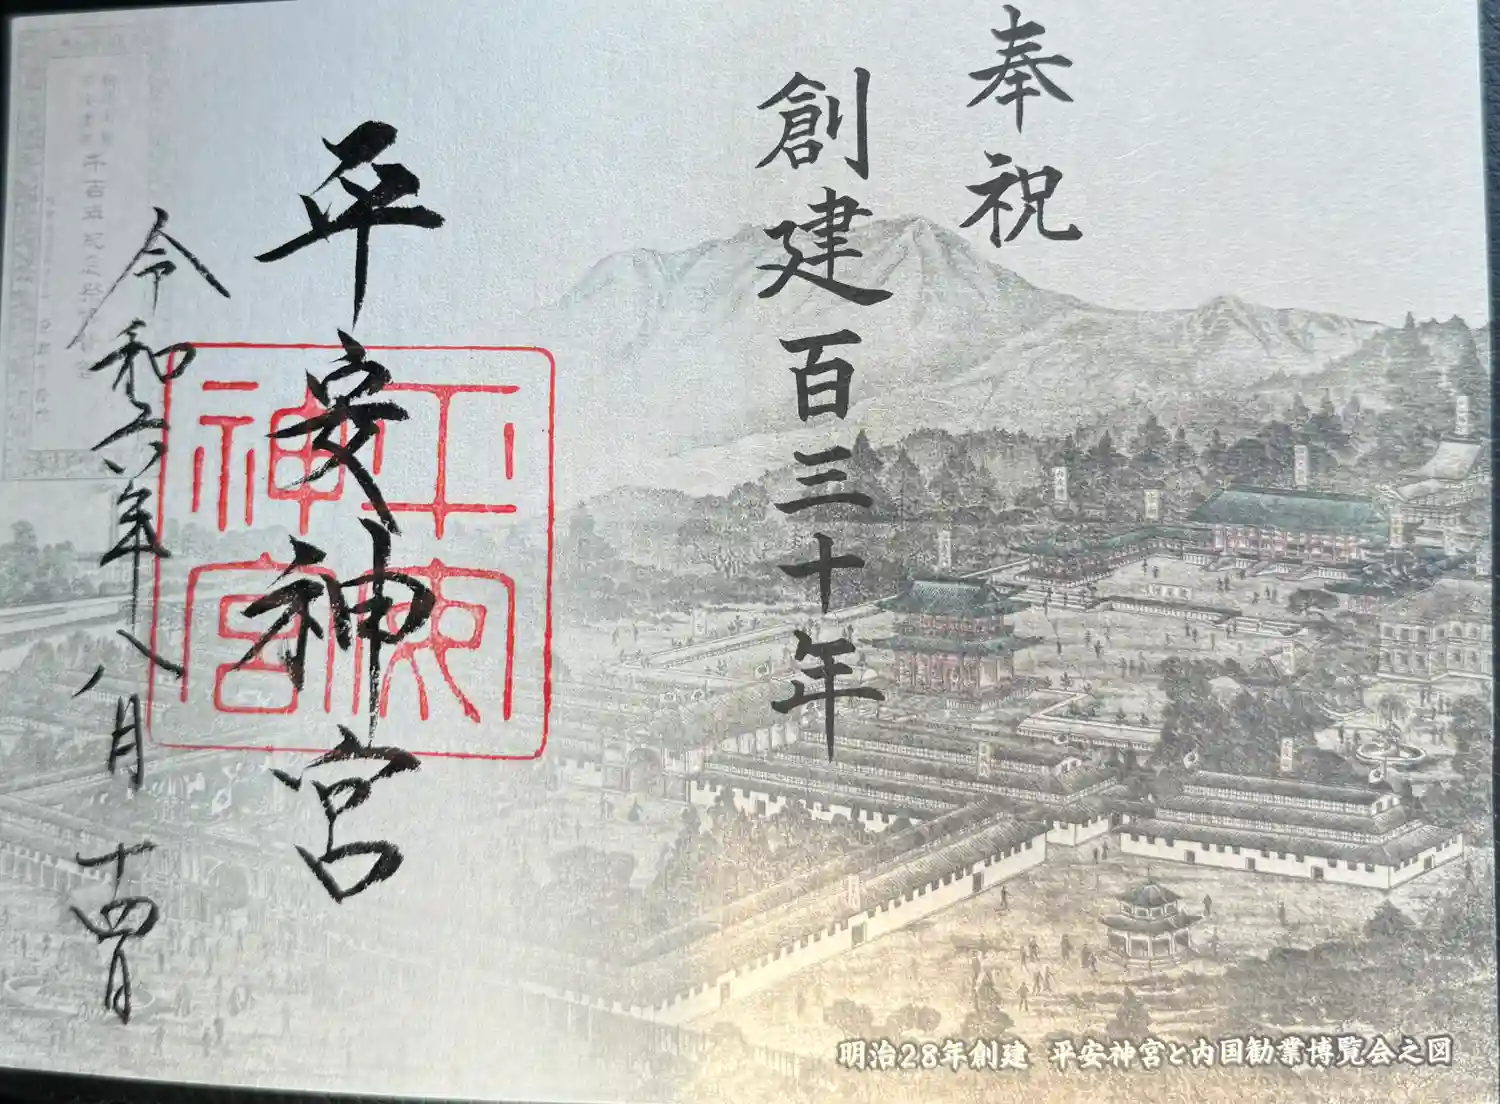 奉祝
創建百三十年
平安神宮
令和六年八月十四日
平安神宮
明治28年創建 平安神宮と内国勧業博覧会之図